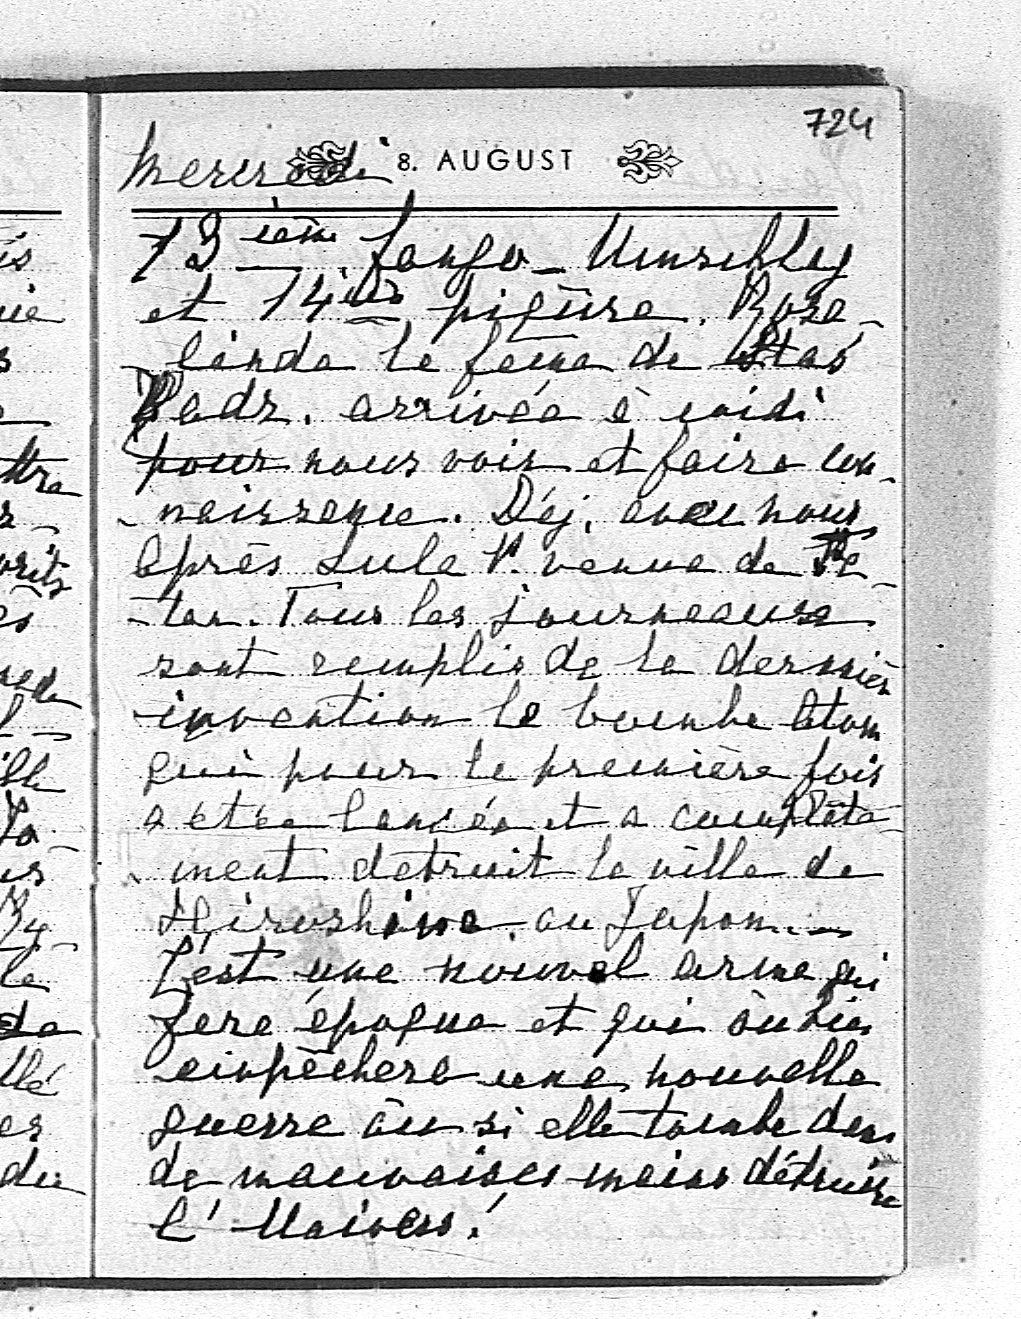 724
Mercredi 8. AUGUST
13 ième fango
et 14 ième piqûre. Rosa-
linda la femme de Stas
Radz. arrivée à midi
pour nous voir et faire con-
naissance. Déj. avec nous
après Lula V. venue de
Tous les journeaux
sont remplis de la dernièr
invention la bombe Atom
qui pour la première fois
a étée lancée et a complète-
ment detruit la ville de
Hiroshima au Japon. —
C'est une nouvel arme qui
fera époque et qui où bien
empêchera une nouvelle
guerre où si elle tombe dans
de mauvaises mains détruire
l'Univers!